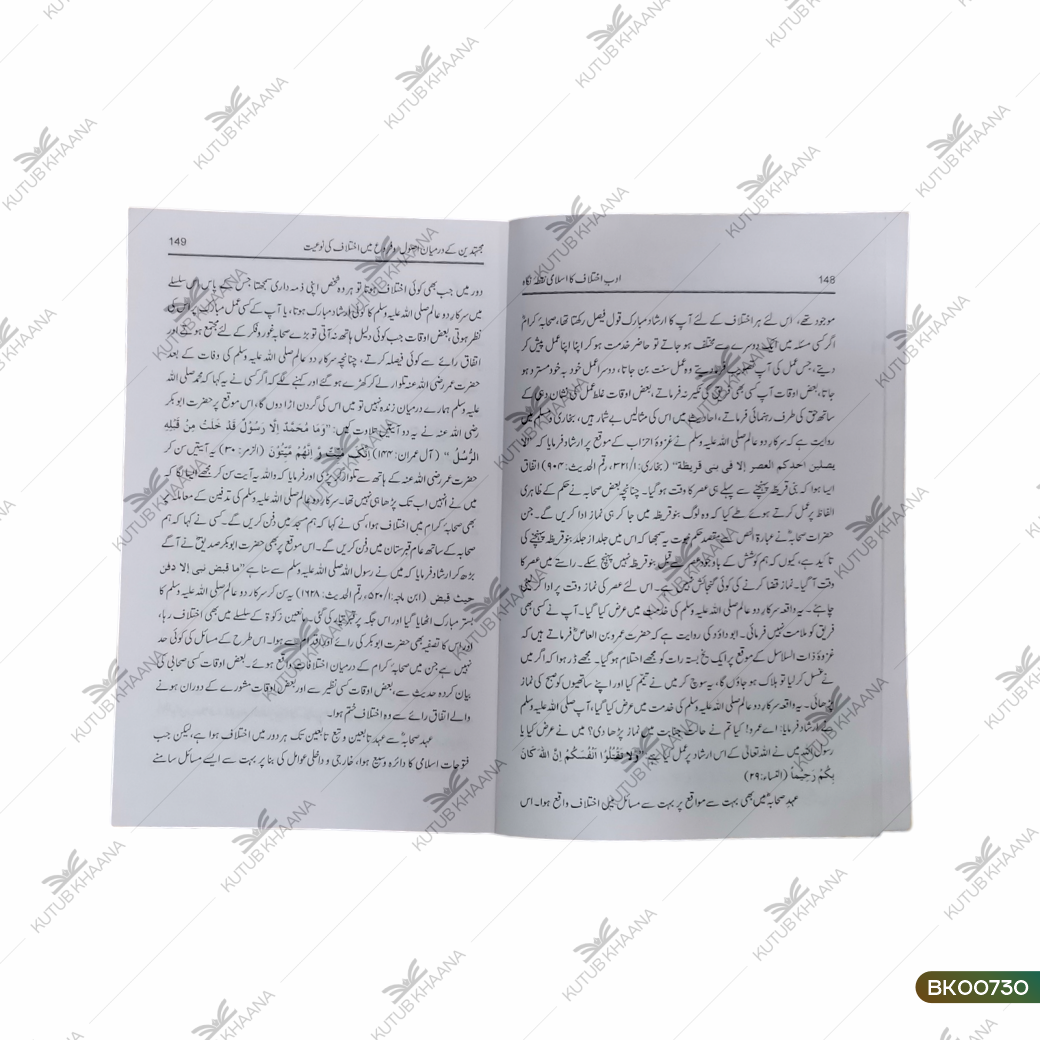 148
ادب اختلاف کا اسلامی نقطۂ نگاہ
موجود تھے، اس لئے ہر اختلاف کے لئے آپ کا ارشاد مبارک قول فیصل رکھتا تھا، صحابہ کرام
اگر کسی مسئلہ میں ایک دوسرے سے مختلف ہو جاتے تو حاضر خدمت ہو کر اپنا اپنا عمل پیش کر
دیتے، جس عمل کی آپ تصویب فرمادیتے وہ عمل سنت بن جاتا، دوسرا عمل خود بہ خود مسترد ہو
جاتا، بعض اوقات آپ کسی بھی فریق کی نکیر نہ فرماتے، بعض اوقات غلط عمل کی نشان دہی کے
ساتھ حق کی طرف رہنمائی فرماتے، احادیث میں اس کی مثالیں بے شمار ہیں، بخاری و مسلم میں
روایت ہے کہ سرکار دو عالم صلی اللہ علیہ وسلم نے غزوۂ احزاب کے موقع پر ارشاد فرمایا کہ "لا
يصلين احدكم العصر إلا في بنى قريظة" (بخاری: ۳۲۱/۱، رقم الحدیث: ۹۰۴) اتفاق
ایسا ہوا کہ بنی قریظہ پہنچنے سے پہلے ہی عصر کا وقت ہو گیا۔ چنانچہ بعض صحابہ نے حکم کے ظاہری
الفاظ پر عمل کرتے ہوئے طے کیا کہ وہ لوگ بنو قریظہ میں جا کر ہی نماز ادا کریں گے۔ جن
حضرات صحابہؓ نے عبارۃ النص کے مقصد حکم نبوت یہ سمجھا کہ اس میں جلد از جلد بنو قریظہ پہنچنے کی
تاکید ہے، کیوں کہ ہم کوشش کے باوجود عصر سے قبل بنو قریظہ نہیں پہنچ سکے۔ راستے میں عصر کا
وقت آ گیا۔ نماز قضا کرنے کی کوئی گنجائش نہیں ہے۔ اس لئے عصر کی نماز وقت پر ادا کر لینی
چاہئے۔ یہ واقعہ سرکار دو عالم صلی اللہ علیہ وسلم کی خدمت میں عرض کیا گیا۔ آپ نے کسی بھی
فریق کو ملامت نہیں فرمائی۔ ابو داؤد کی روایت ہے کہ حضرت عمرو بن العاص فرماتے ہیں کہ
غزوۂ ذات السلاسل کے موقع پر ایک یخ بستہ رات کو مجھے احتلام ہو گیا۔ مجھے ڈر ہوا کہ اگر میں
نے غسل کر لیا تو ہلاک ہو جاؤں گا، یہ سوچ کر میں نے تیمم کیا اور اپنے ساتھیوں کو صبح کی نماز
پڑھائی۔ یہ واقعہ سرکار دو عالم صلی اللہ علیہ وسلم کی خدمت میں عرض کیا گیا، آپ صلی اللہ علیہ وسلم
نے ارشاد فرمایا: اے عمرو! کیا تم نے حالت جنابت میں نماز پڑھا دی؟ میں نے عرض کیا یا
رسول اللہ میں نے اللہ تعالی کے اس ارشاد پر عمل کیا ہے "وَلَا تَقْتُلُوْا اَنْفُسَكُمْ اِنَّ اللّٰهَ كَانَ
بِكُمْ رَحِيْماً (النساء: ۲۹)
عہد صحابہؓ میں بھی بہت سے مواقع پر بہت سے مسائل میں اختلاف واقع ہوا۔ اس
مجتہدین کے درمیان اصول اور فروع میں اختلاف کی نوعیت
149
دور میں جب بھی کوئی اختلاف ہوتا تو ہر وہ شخص اپنی ذمہ داری سمجھتا جس کے پاس اس سلسلے
میں سرکار دو عالم صلی اللہ علیہ وسلم کا کوئی ارشاد مبارک ہوتا، یا آپ کے کسی عمل مبارک پر اس کی
نظر ہوتی، بعض اوقات جب کوئی دلیل ہاتھ نہ آتی تو بڑے صحابہ غور و فکر کے لئے مجتمع ہوتے اور
اتفاق رائے سے کوئی فیصلہ کرتے، چنانچہ سرکار دو عالم صلی اللہ علیہ وسلم کی وفات کے بعد
حضرت عمر رضی اللہ عنہ تلوار لے کر کھڑے ہو گئے اور کہنے لگے کہ اگر کسی نے یہ کہا کہ محمد صلی اللہ
علیہ وسلم ہمارے درمیان زندہ نہیں تو میں اس کی گردن اڑا دوں گا، اس موقع پر حضرت ابوبکر
رضی اللہ عنہ نے یہ دو آیتیں تلاوت کیں: "وَمَا مُحَمَّدٌ اِلَّا رَسُوْلٌ قَدْ خَلَتْ مِنْ قَبْلِهِ
الرُّسُلُ" (آل عمران: ۱۴۴) اِنَّكَ مَيِّتٌ وَّ اِنَّهُمْ مَّيِّتُوْنَ (الزمر: ۳۰) یہ آیتیں سن کر
حضرت عمر رضی اللہ عنہ کے ہاتھ سے تلوار گر پڑی اور فرمایا کہ واللہ یہ آیت سن کر مجھے ایسا لگا کہ
میں نے انہیں اب تک پڑھا ہی نہیں تھا۔ سرکار دو عالم صلی اللہ علیہ وسلم کی تدفین کے معاملے پر
بھی صحابہ کرام میں اختلاف ہوا، کسی نے کہا کہ ہم مسجد میں دفن کریں گے۔ کسی نے کہا کہ ہم
صحابہ کے ساتھ عام قبرستان میں دفن کریں گے۔ اس موقع پر بھی حضرت ابوبکر صدیقؓ نے آگے
بڑھ کر ارشاد فرمایا کہ میں نے رسول اللہ صلی اللہ علیہ وسلم سے سنا ہے "ما قبض نبى إلا دفن
حيث قبض (ابن ماجہ: ۵۲۰/۱، رقم الحدیث: ۱۶۲۸) یہ سن کر سرکار دو عالم صلی اللہ علیہ وسلم کا
بستر مبارک اٹھایا گیا اور اس جگہ پر قبر تیار کی گئی۔ مانعین زکوۃ کے سلسلے میں بھی اختلاف رہا،
اور اس کا تصفیہ بھی حضرت ابوبکر کی رائے اور اقدام سے ہوا۔ اس طرح کے مسائل کی کوئی حد
نہیں ہے جن میں صحابۂ کرام کے درمیان اختلافات واقع ہوئے۔ بعض اوقات کسی صحابی کی
بیان کردہ حدیث سے، بعض اوقات کسی نظیر سے اور بعض اوقات مشورے کے دوران ہونے
والے اتفاق رائے سے وہ اختلاف ختم ہوا۔
عہد صحابہؓ سے عہد تابعین و تبع تابعین تک ہر دور میں اختلاف ہوا ہے، لیکن جب
فتوحات اسلامی کا دائرہ وسیع ہوا، خارجی و داخلی عوامل کی بنا پر بہت سے ایسے مسائل سامنے
KUTUB KHAANA
BK00730